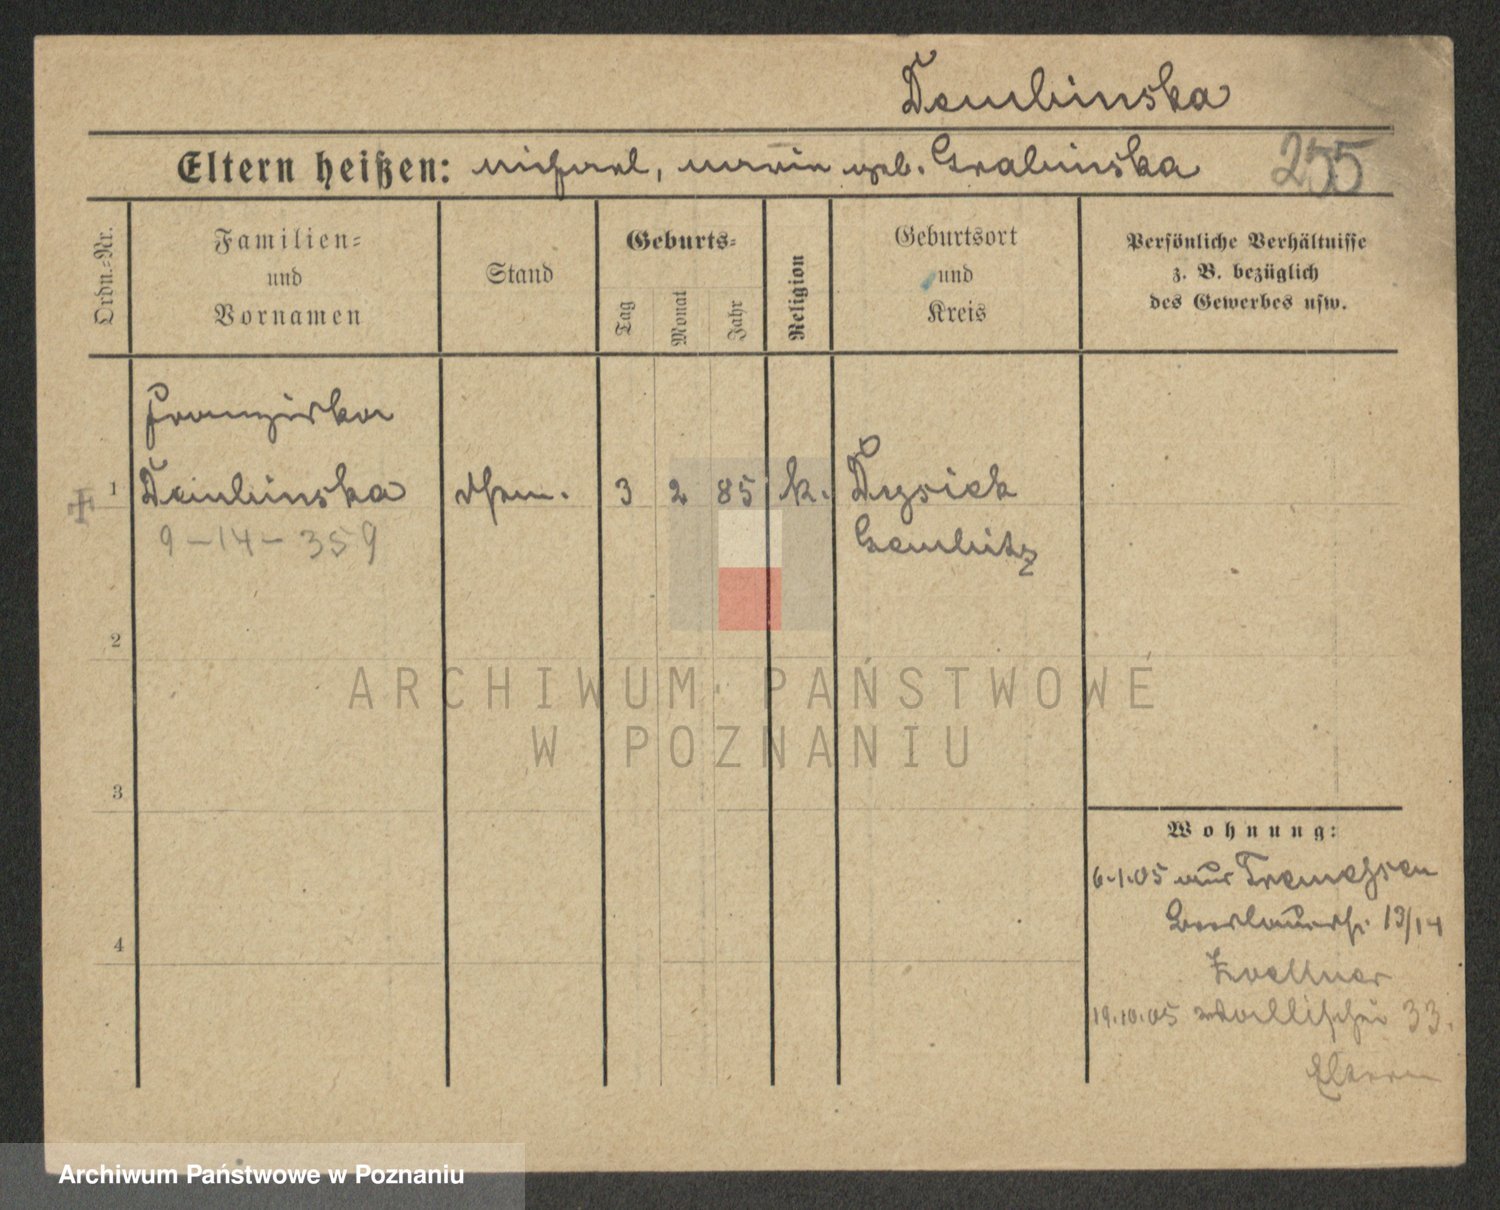 Dembinska
Eltern heißen: Michael, Marie geb. Grabinska 255
Ordn.-Nr.
Familien-
und
Vornamen
Stand
Geburts-
Tag
Monat
Jahr
Religion
Geburtsort
und
Kreis
Persönliche Verhältnisse
z. B. bezüglich
des Gewerbes usw.
Franziska
1 Dembinska 3 2 85 k.
9-14-359 Gembitz
2
3
4
Wohnung:
6.1.05 aus Tremessen
13/14
Zoellner
19.10.05 Wallischei 33.
Eltern
ARCHIWUM PAŃSTWOWE
W POZNANIU
Archiwum Państwowe w Poznaniu